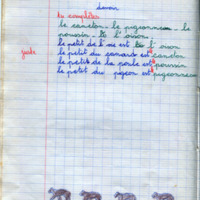 devoir
à compléter
le caneton - le pigeonneau - le
poussin - l'oison.
le petit de l'oie est l'oison
juste le petit du canard est caneton
le petit de la poule est poussin
le petit du pigeon est pigeonneau